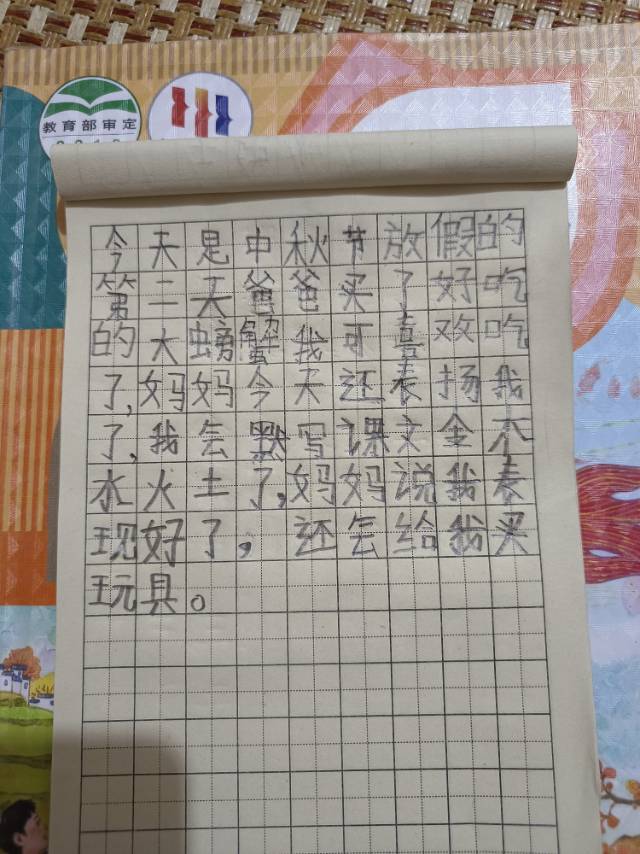 教育部审定
今天是中秋节放假的
第二天爸爸买了好吃
的大螃蟹我可喜欢吃
了,妈妈今天还表扬我
了,我会默写课文金木
水火土了,妈妈说我表
现好了，还会给我买
玩具。